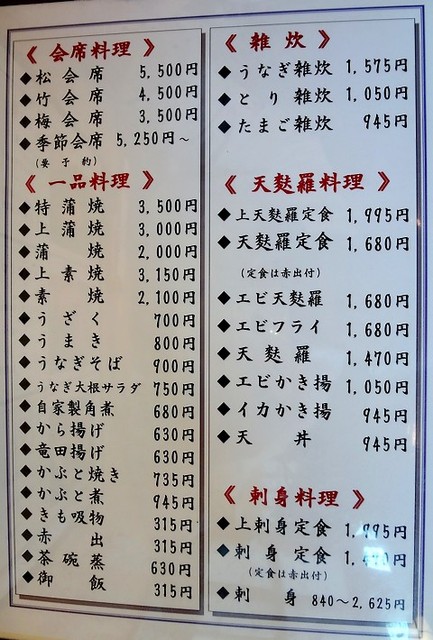 《 会席料理 》
◆松会席 5,500円
◆竹会席 4,500円
◆梅会席 3,500円
◆季節会席 5,250円～
(要予約)
《 一品料理 》
◆特蒲焼 3,500円
◆上蒲焼 3,000円
◆蒲焼 2,000円
◆上素焼 3,150円
◆素焼 2,100円
◆うざく 700円
◆うまき 800円
◆うなぎそば 900円
◆うなぎ大根サラダ 750円
◆自家製角煮 680円
◆から揚げ 630円
◆竜田揚げ 630円
◆かぶと焼き 735円
◆かぶと煮 945円
◆きも吸物 315円
◆赤出 315円
◆茶碗蒸 630円
◆御飯 315円
《 雑炊 》
◆うなぎ雑炊 1,575円
◆とり雑炊 1,050円
◆たまご雑炊 945円
《 天麩羅料理 》
◆上天麩羅定食 1,995円
◆天麩羅定食 1,680円
(定食は赤出付)
◆エビ天麩羅 1,680円
◆エビフライ 1,680円
◆天麩羅 1,470円
◆エビかき揚 1,050円
◆イカかき揚 945円
◆天丼 945円
《 刺身料理 》
◆上刺身定食 1,995円
◆刺身定食
(定食は赤出付)
◆刺身 840～2,625円